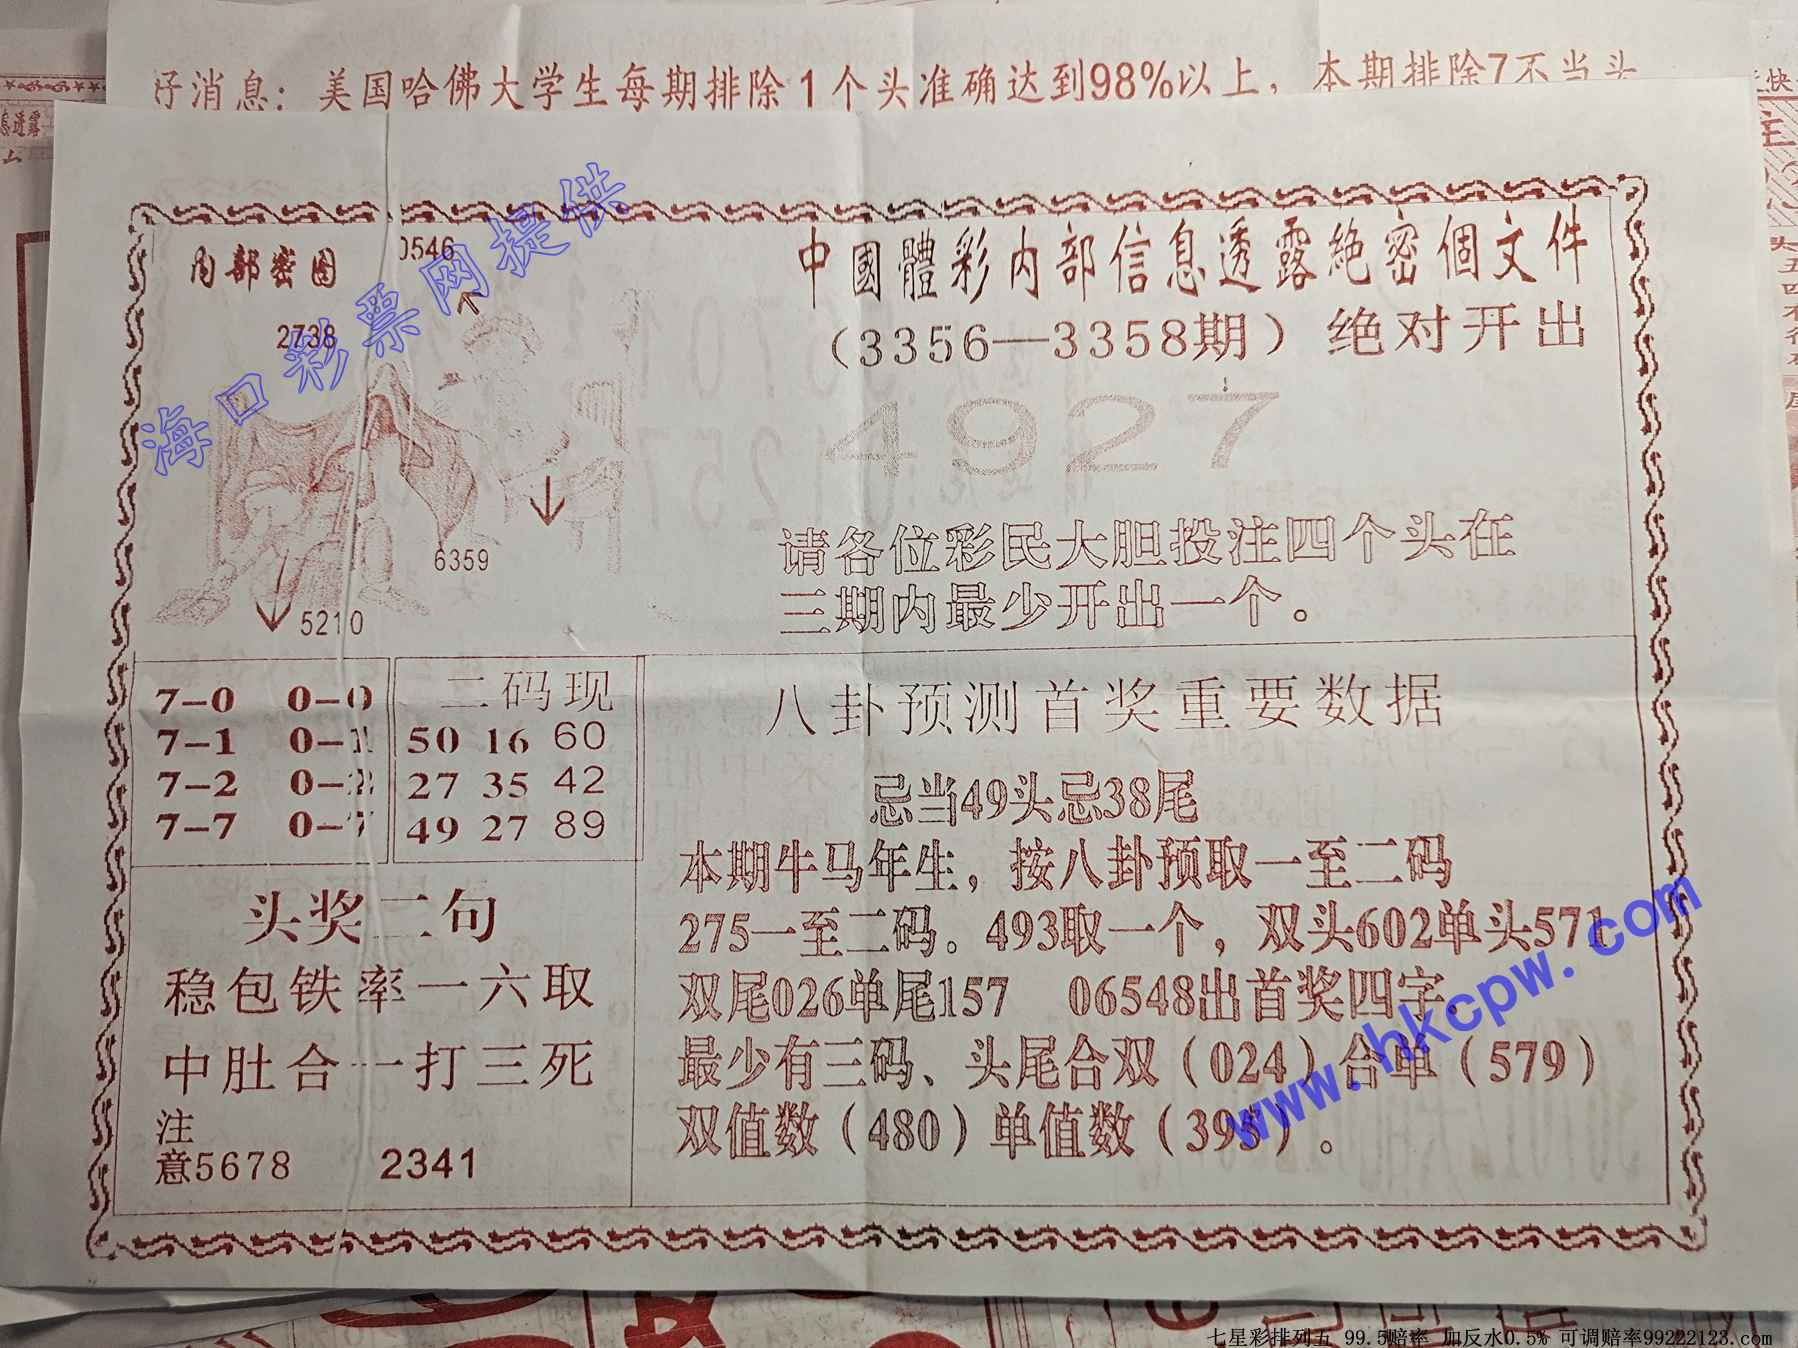 好消息：美国哈佛大学生每期排除1个头准确达到98%以上，本期排除7不当头
内部密图
0546
2738
6359
5210
中國體彩内部信息透露絶密個文件
（3356—3358期）绝对开出
4927
请各位彩民大胆投注四个头在
三期内最少开出一个.
7-0 0-0
7-1 0-1
7-2 0-2
7-7 0-7
二码现
50 16 60
27 35 42
49 27 89
头奖二句
稳包铁率一六取
中肚合一打三死
注
意5678 2341
八卦预测首奖重要数据
忌当49头忌38尾
本期牛马年生，按八卦预取一至二码
275一至二码. 493取一个，双头602单头571
双尾026单尾157 06548出首奖四字.
最少有三码、头尾合双（024）合单（579）
双值数（480）单值数（395）.
海口彩票网提供
www.hkcpw.com
七星彩排列五 99.5赔率 加反水0.5% 可调赔率99222123.com